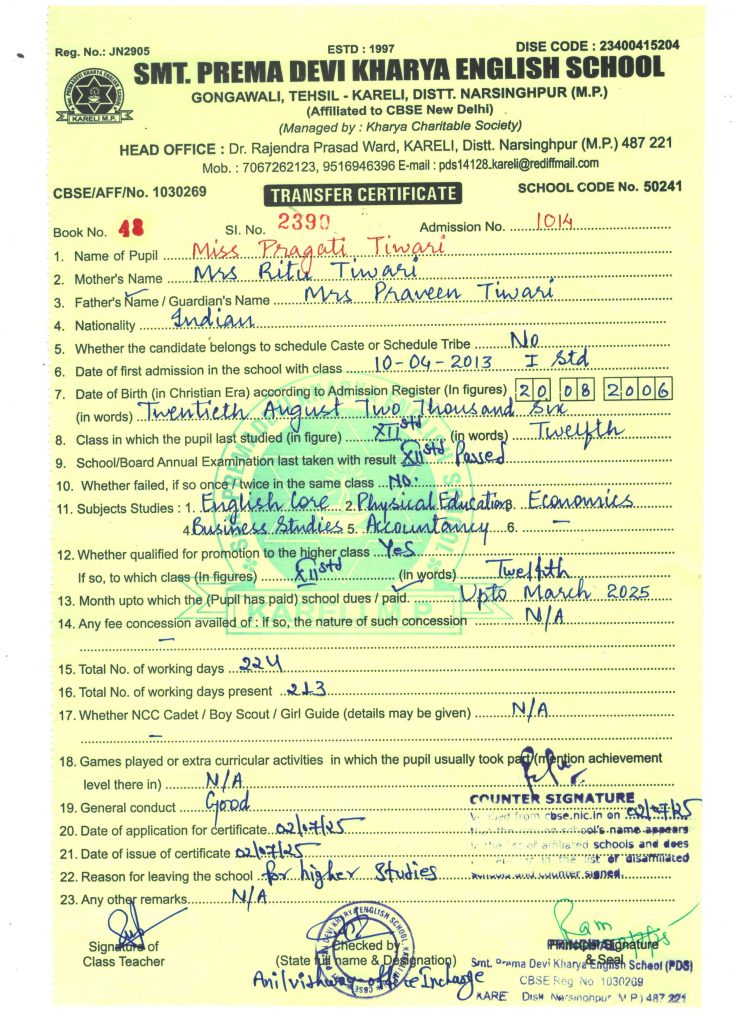 Reg. No.: JN2905 ESTD : 1997 DISE CODE : 23400415204
SMT. PREMA DEVI KHARYA ENGLISH SCHOOL
GONGAWALI, TEHSIL - KARELI, DISTT. NARSINGHPUR (M.P.)
(Affiliated to CBSE New Delhi)
(Managed by : Kharya Charitable Society)
KARELI M.P.
HEAD OFFICE : Dr. Rajendra Prasad Ward, KARELI, Distt. Narsinghpur (M.P.) 487 221
Mob. : 7067262123, 9516946396 E-mail : pds14128.kareli@rediffmail.com
CBSE/AFF/No. 1030269 TRANSFER CERTIFICATE SCHOOL CODE No. 50241
Book No. 48 Sl. No. 2390 Admission No. 1014
1. Name of Pupil Miss Pragati Tiwari
2. Mother's Name Mrs Ritu Tiwari
3. Father's Name / Guardian's Name Mrs Praveen Tiwari
4. Nationality Indian
5. Whether the candidate belongs to schedule Caste or Schedule Tribe No
6. Date of first admission in the school with class 10-04-2013 I Std
7. Date of Birth (in Christian Era) according to Admission Register (In figures) 20 08 2006
(in words) Twentieth August Two Thousand Six
8. Class in which the pupil last studied (in figure) XII std (in words) Twelfth
9. School/Board Annual Examination last taken with result XII std Passed
10. Whether failed, if so once / twice in the same class No.
11. Subjects Studies : 1. English Core 2. Physical Education 3. Economics
4. Business Studies 5. Accountancy 6. –
12. Whether qualified for promotion to the higher class Yes
If so, to which class (In figures) XII std (in words) Twelfth
13. Month upto which the (Pupil has paid) school dues / paid Upto March 2025
KARELI M.P.
14. Any fee concession availed of : if so, the nature of such concession N/A
–
15. Total No. of working days 224
16. Total No. of working days present 213
17. Whether NCC Cadet / Boy Scout / Girl Guide (details may be given) N/A
–
18. Games played or extra curricular activities in which the pupil usually took part (mention achievement
level there in) N/A
19. General conduct Good
COUNTER SIGNATURE
from cbse.nic.in on 02/07/25
school's name appears
in the list of affiliated schools and does
in the list of disaffiliated
schools and counter signed
20. Date of application for certificate 02/07/25
21. Date of issue of certificate 02/07/25
22. Reason for leaving the school for higher Studies
23. Any other remarks N/A
Signature of
Class Teacher
Checked by
(State full name & Designation)
Principal Signature
& Seal
Smt. Prema Devi Kharya English School (PDS)
CBSE Reg No 1030269
KARE Distt Narsinghpur M P) 487 221